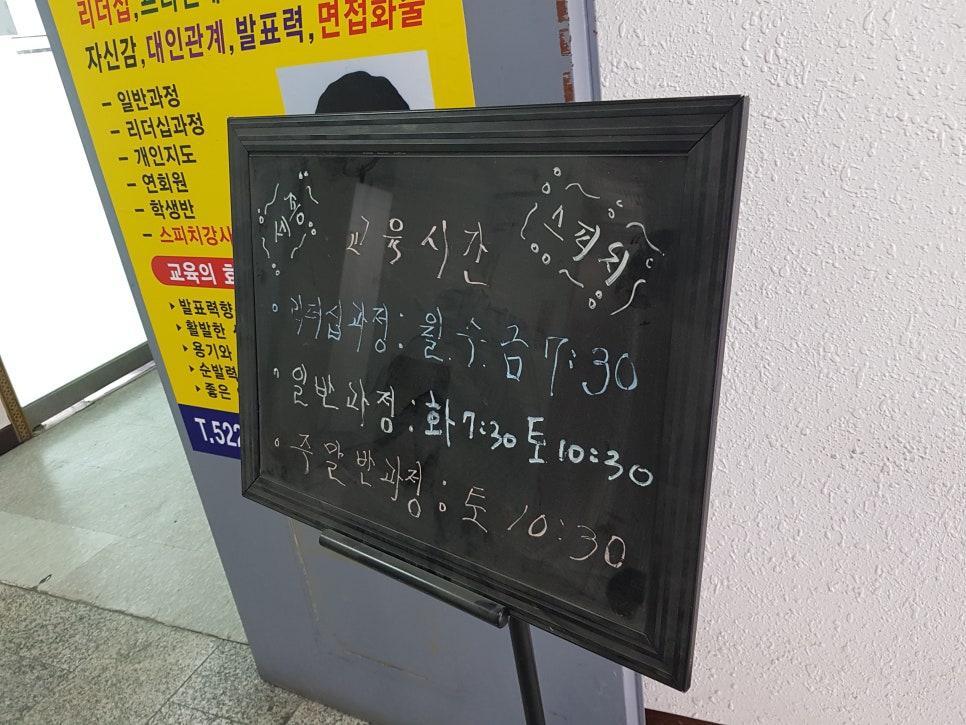 리더십,
자신감,대인관계,발표력,면접화술
- 일반과정
- 리더십과정
- 개인지도
- 연회원
- 학생반
- 스피치강사
교육의
발표력향
활발한
용기와
순발력
좋은
T.522
세종 교육시간 스피치
리더십과정: 월.수.금 7:30
일반과정:화7:30 토10:30
주말반과정: 토 10:30